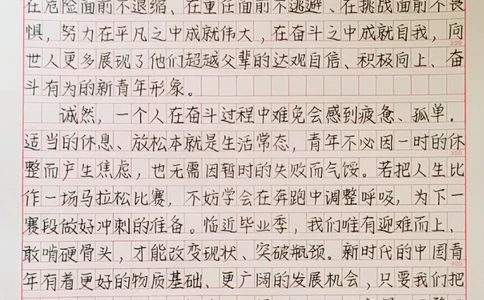 在危险面前不退缩、在重任面前不逃避、在挑战面前不畏
惧，努力在平凡之中成就伟大，在奋斗之中成就自我，向
世人更多展现了他们超越父辈的达观自信、积极向上、奋
斗有为的新青年形象。
诚然，一个人在奋斗过程中难免会感到疲惫、孤单。
适当的休息、放松本就是生活常态，青年不必因一时的休
整而产生焦虑，也无需因暂时的失败而气馁。若把人生比
作一场马拉松比赛，不妨学会在奔跑中调整呼吸，为下一
赛段做好冲刺的准备。临近毕业季，我们唯有迎难而上、
敢啃硬骨头，才能改变现状、突破瓶颈。新时代的中国青
年有着更好的物质基础、更广阔的发展机会，只要我们把